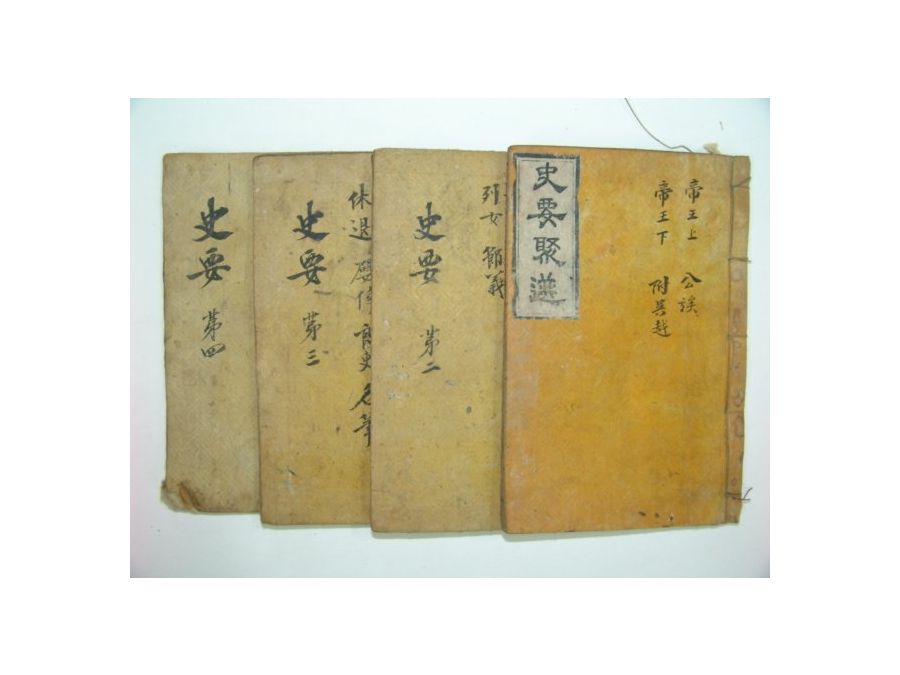 史要聚選
帝王上 公誒
帝王下 附吳越
史要 第二
列女 節義
史要 第三
休退
良史 名筆
史要 第四